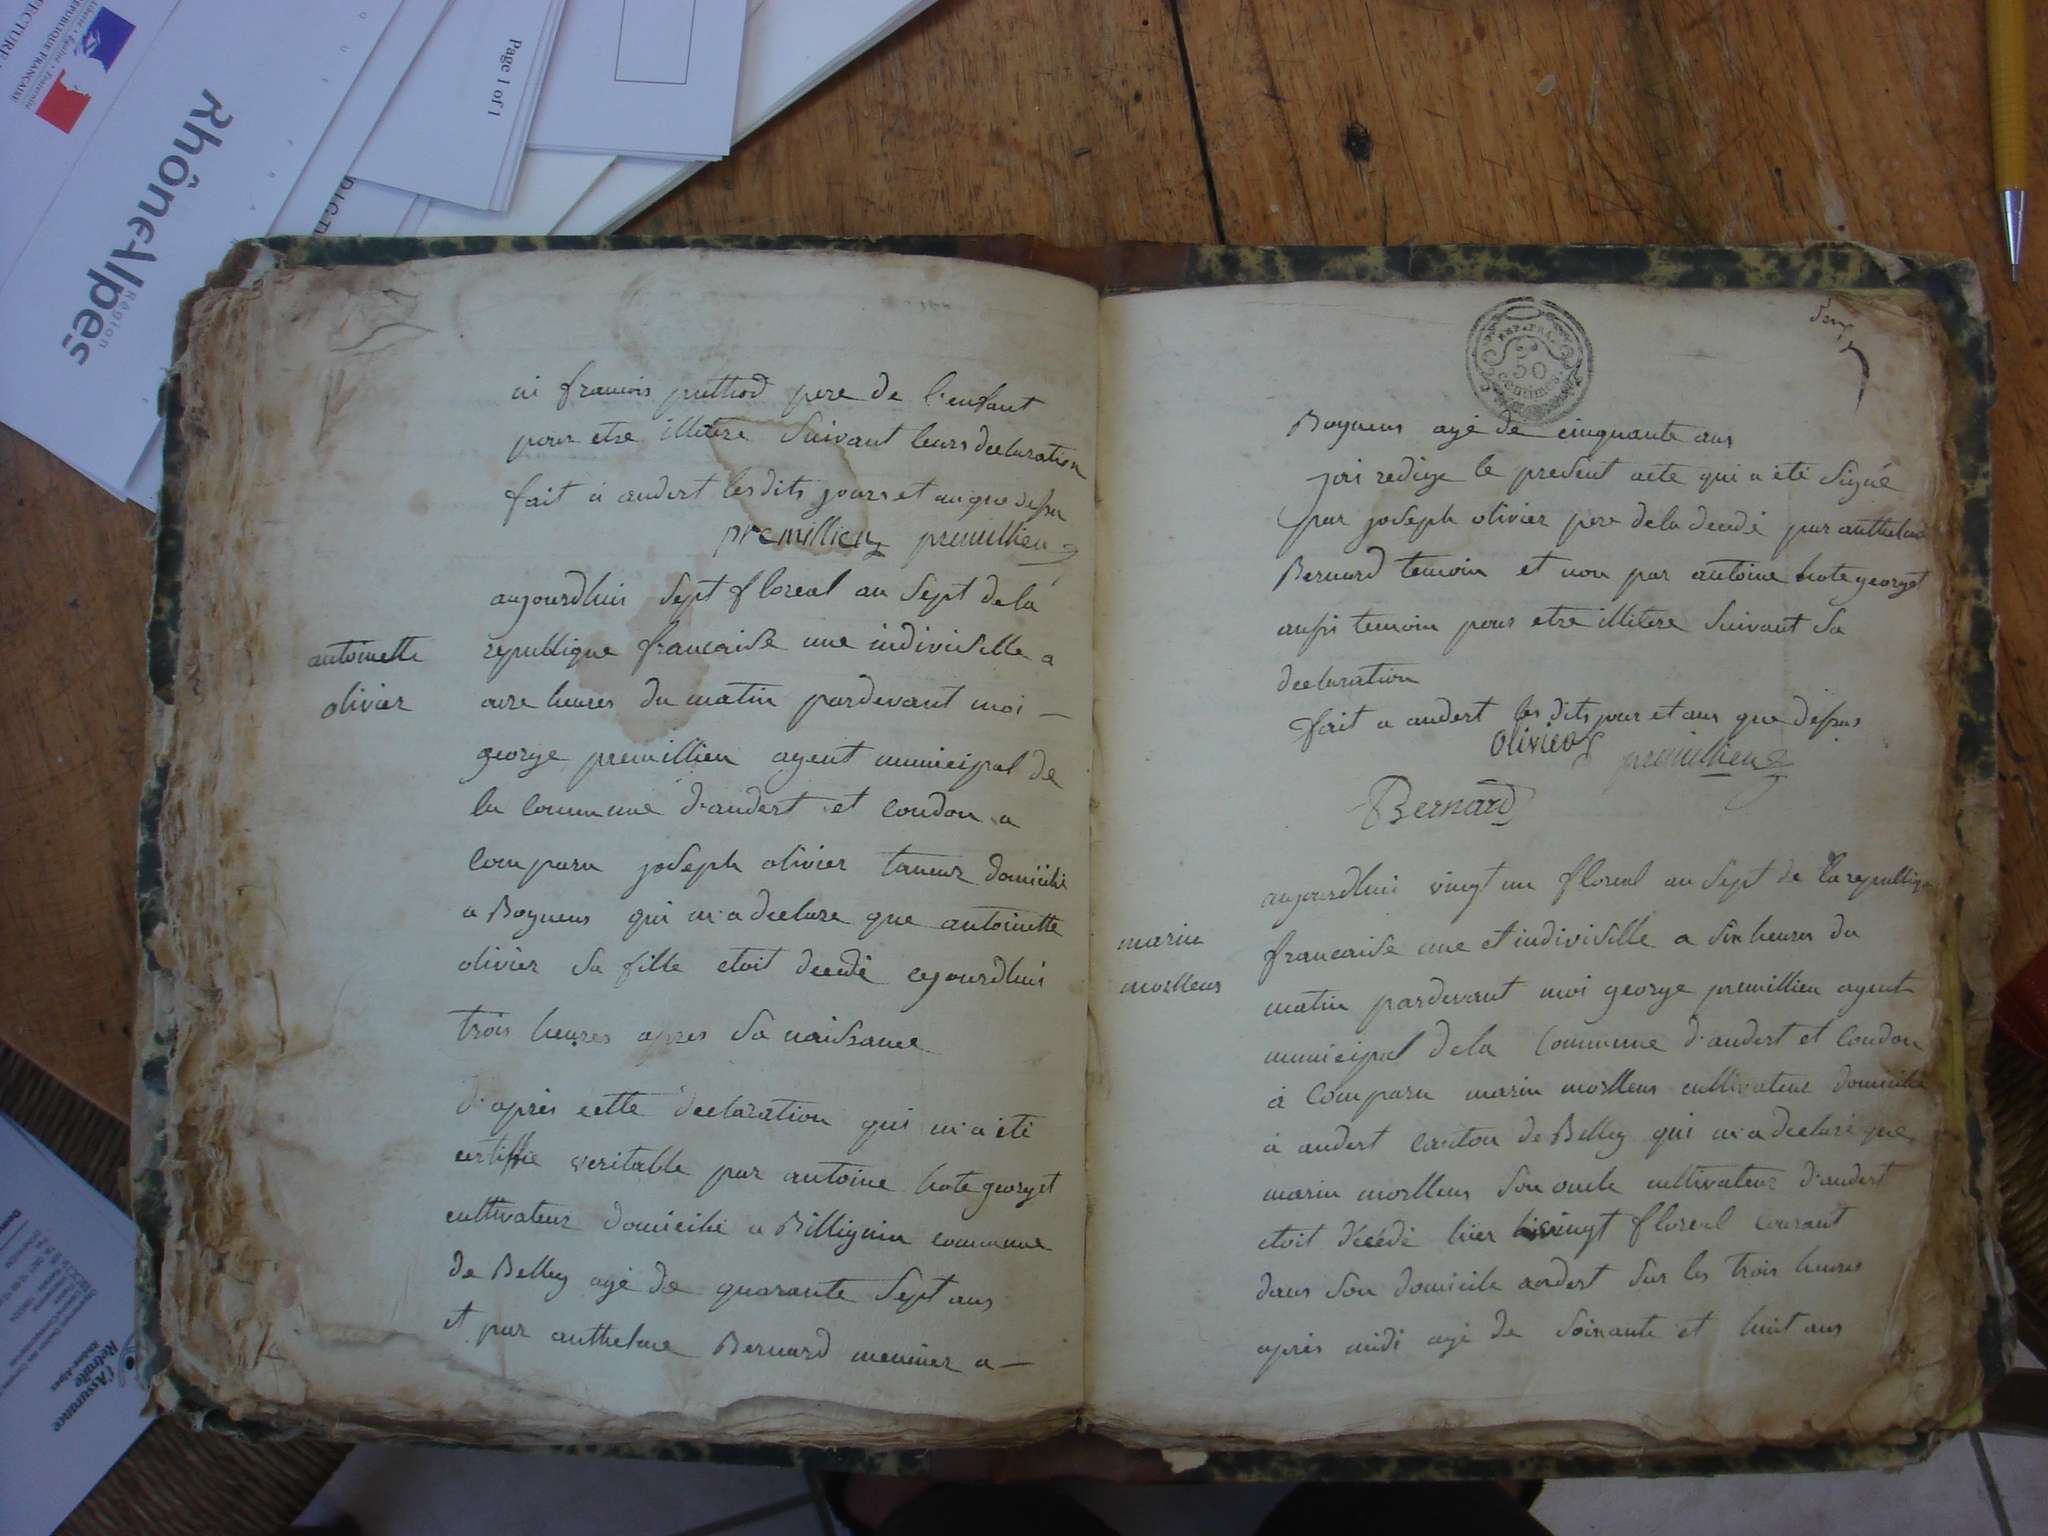 RÉPUBLIQUE FRANÇAISE
Rhône-Alpes
Région
Page 1 of 1
ni francois puthod pere de l'enfant
pour etre illitere suivant leurs declaration
fait a andert les dits jours et an que dessu
premillieu premillieu
antoinette
olivier
aujourdhui sept floreal an sept de la
republique francaise une indivisille a
onze heures du matin pardevant moi -
george premillieu agent municipal de
la commune d'andert et condon a
comparu joseph olivier taneur domicilié
a Bogneus qui m'a declare que antoinette
olivier sa fille etoit decedé cejourdhui
trois heures apres sa naissance
d'après cette declaration qui m'a été
certiffié veritable par antoine hote georget
cultivateur domicilié a Billignin commune
de Belley agé de quarante sept ans
et par anthelme Bernard meunier a -
REP. FRA.
50
centimes
Bogneus agé de cinquante ans
jai redige le present acte qui a été signé
par joseph olivier pere de la decedé par anthelme
Bernard temoin et non par antoine hote georget
aussi temoin pour etre illitere suivant sa
declaration
fait a andert les dits jour et ans que dessus
olivier premillieu
Bernard
marin
morlleus
aujourdhui vingt un floreal an sept de la republique
francaise une et indivisille a six heures du
matin pardevant moi george premillieu agent
municipal de la commune d'andert et condon
à comparu marin morlleus cultivateur domicilié
à andert canton de Belley qui m'a declaré que
marin morlleus son oncle cultivateur d'andert
etoit décédé hier vingt floreal courant
dans son domicile andert sur les trois heures
après midi agé de soixante et huit ans
l'Assurance
Retraite
Rhône-Alpes